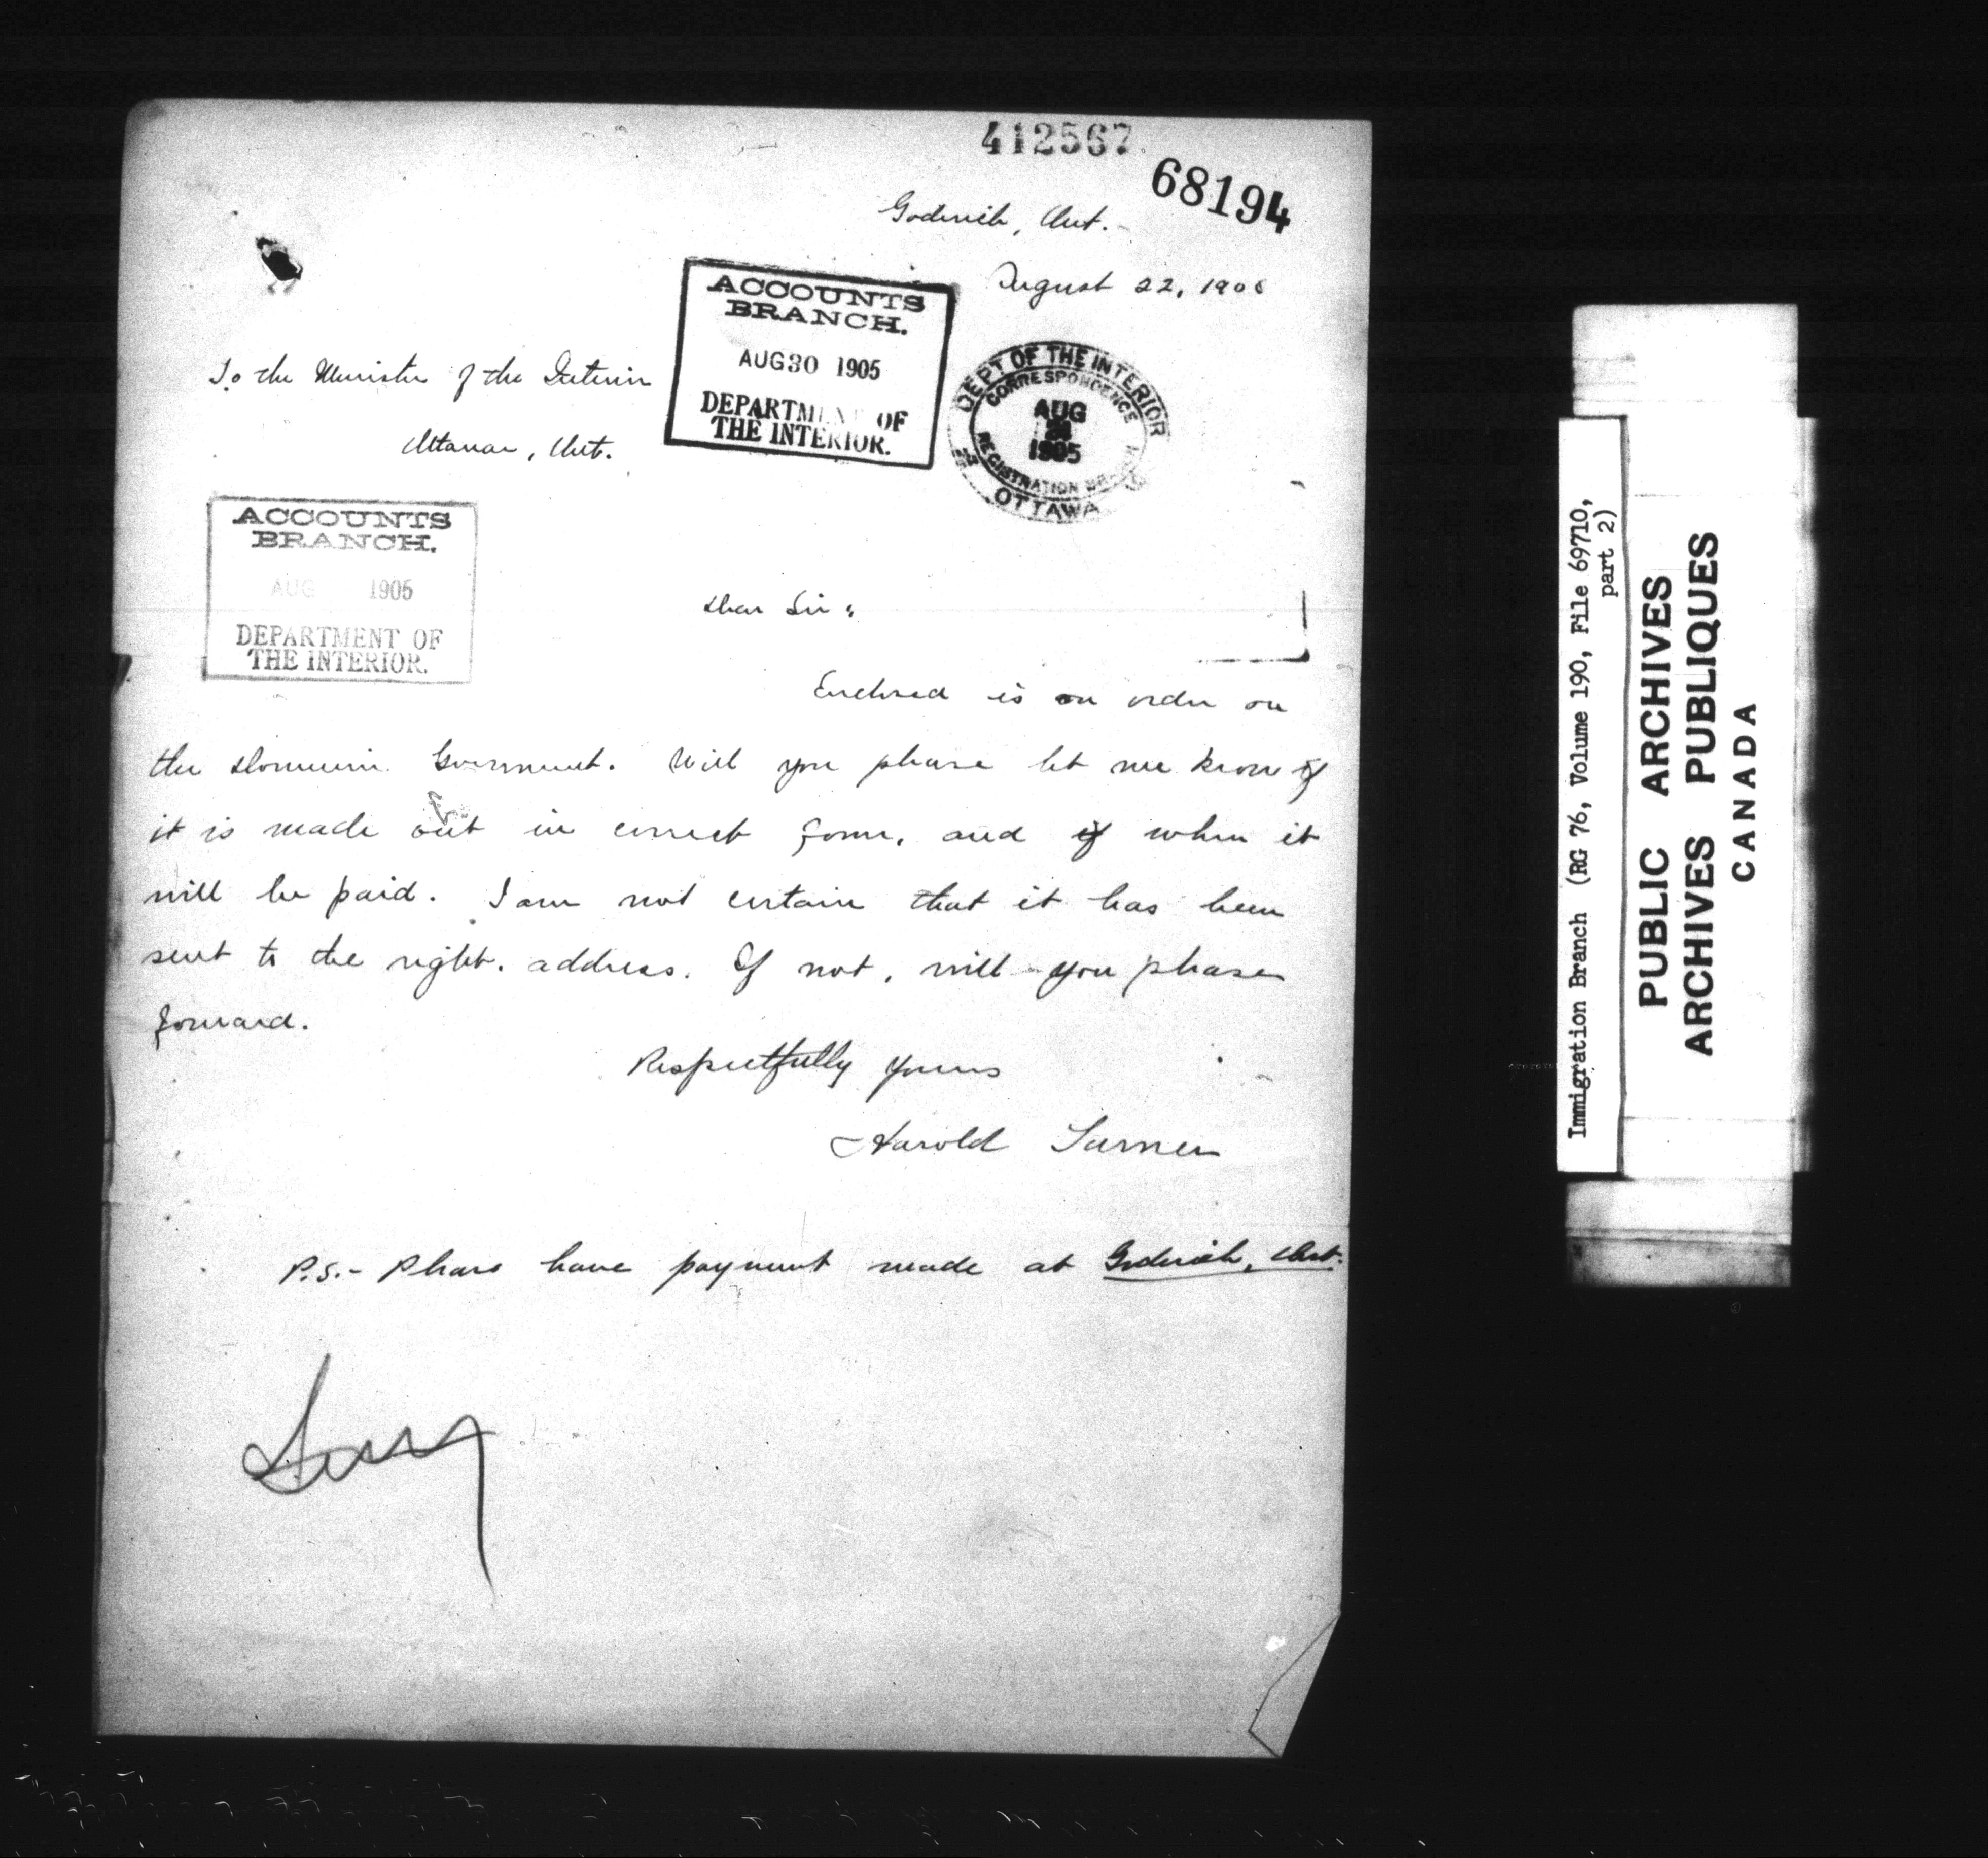 412567
68194
Goderich, Ont.
August 22, 1905
ACCOUNTS
BRANCH.
AUG 30 1905
DEPARTMENT OF
THE INTERIOR.
DEPT OF THE INTERIOR
CORRESPONDENCE
AUG
28
1905
REGISTRATION
OTTAWA
To the Minister of the Interior
Ottawa, Ont.
ACCOUNTS
BRANCH.
AUG 1905
DEPARTMENT OF
THE INTERIOR.
Dear Sir:
Enclosed is an order on
the Dominion Government. Will you please let me know if
it is made out in correct form, and if when it
will be paid. I am not certain that it has been
sent to the right address. If not, will you please
forward.
Respectfully yours
Harold Turner
P.S.- Please have payment made at Goderich, Ont.
Immigration Branch (RG 76, Volume 190, File 69710,
part 2)
PUBLIC ARCHIVES
ARCHIVES PUBLIQUES
CANADA